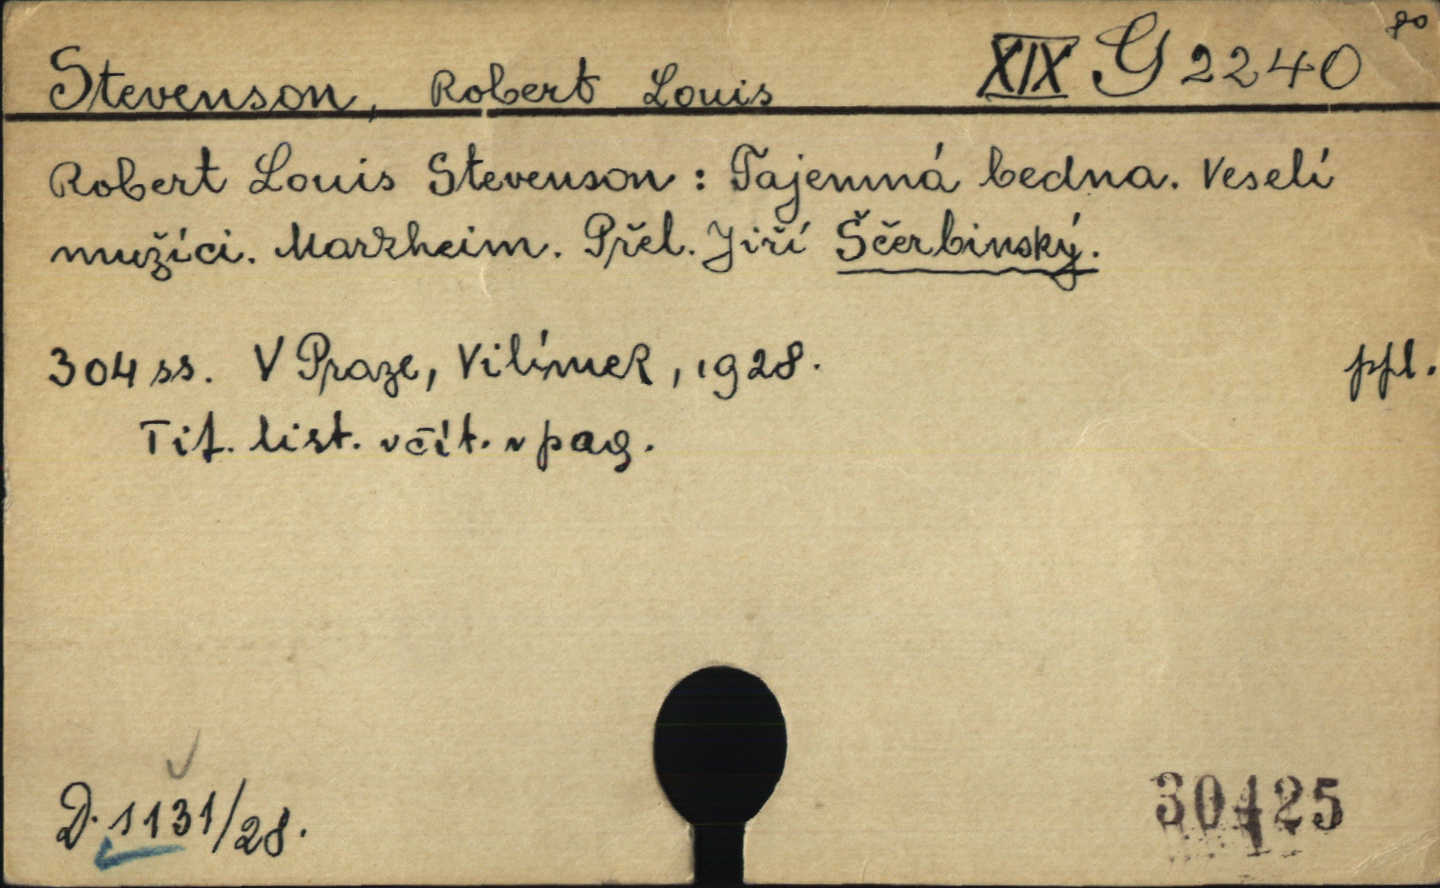 Stevenson, Robert Louis XIX G 2240 80
Robert Louis Stevenson: Tajemná bedna. Veselí
mužíci. Markheim. Přel. Jiří Ščerbinský.
304 ss. V Praze, Vilímek, 1928. ppl.
Tit. list. včít. v pag.
D. 1131/28.
30425